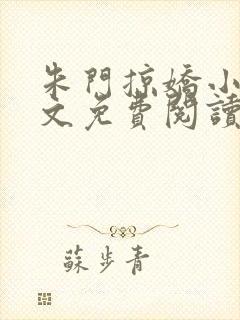 朱門掠嬌小
文免費閱讀
蘇步青